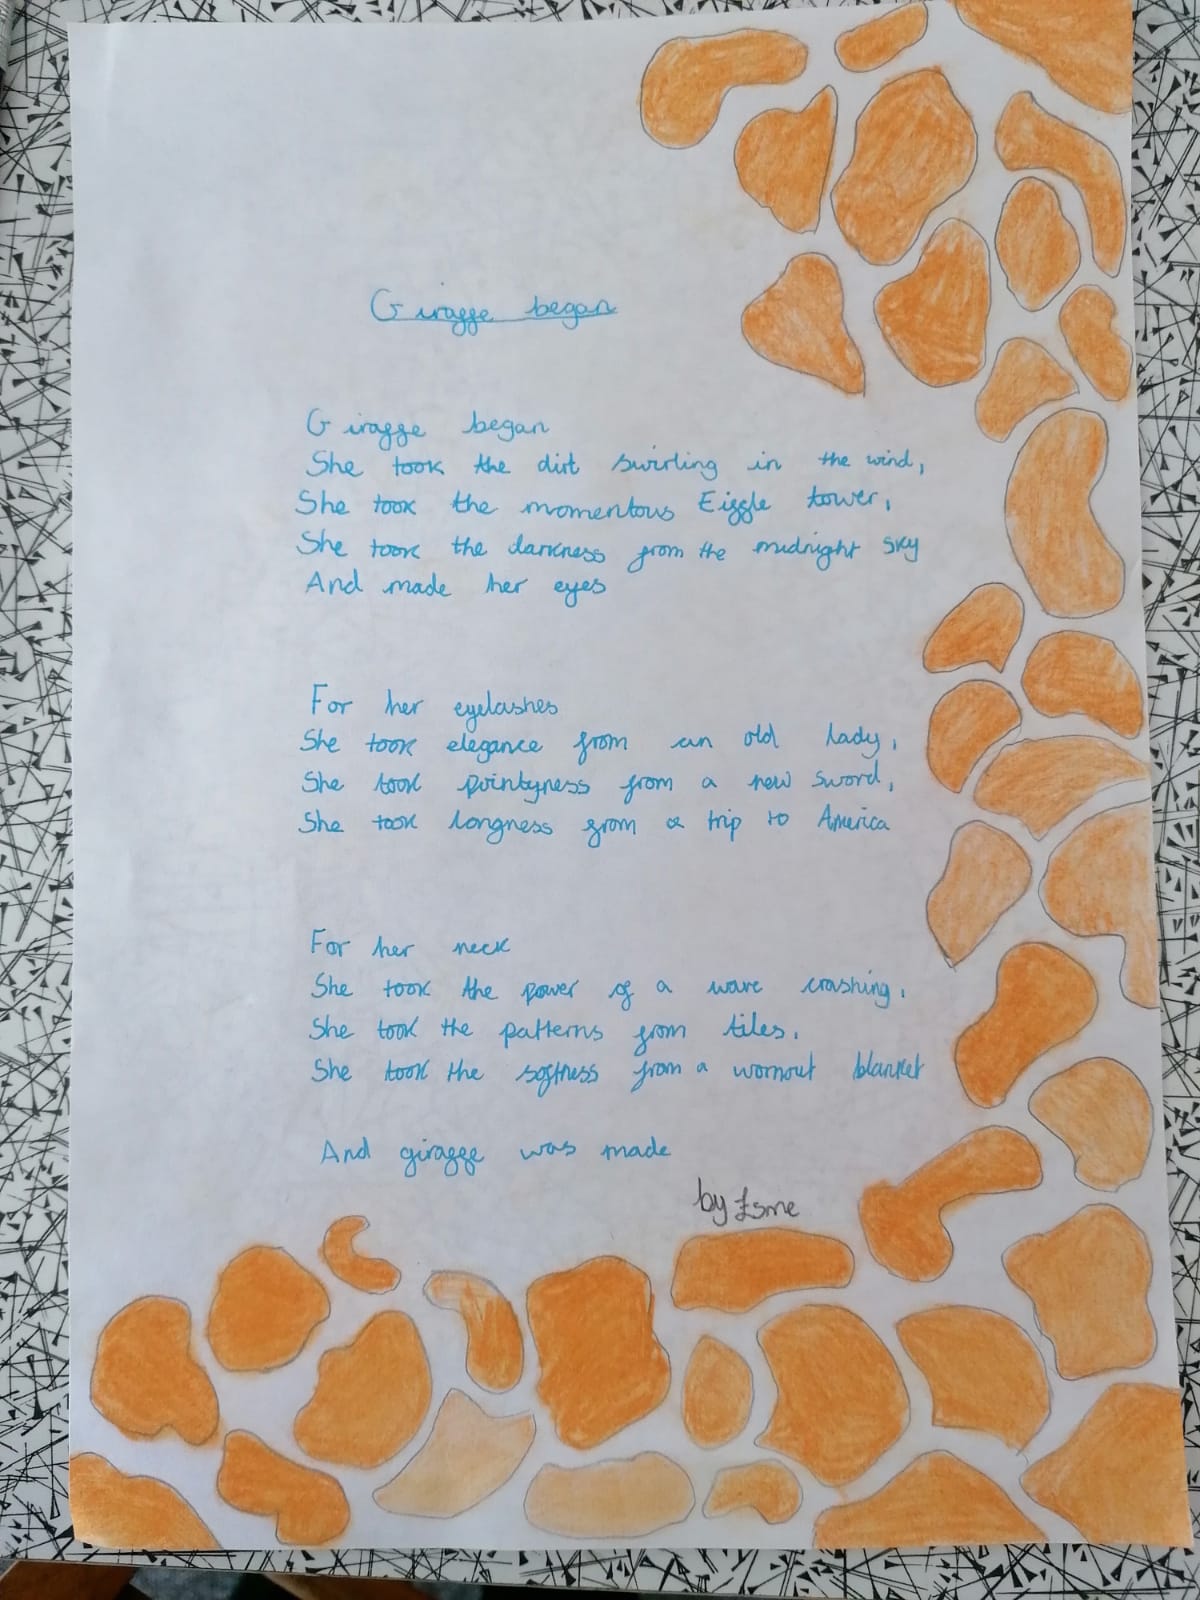 Giraffe began
Giraffe began
She took the dirt swirling in the wind,
She took the momentous Eiffle tower,
She took the darkness from the midnight sky
And made her eyes
For her eyelashes
She took elegance from an old lady,
She took pointyness from a new sword,
She took longness from a trip to America
For her neck
She took the power of a wave crashing,
She took the patterns from tiles,
She took the softness from a wornout blanket
And giraffe was made
by Esme